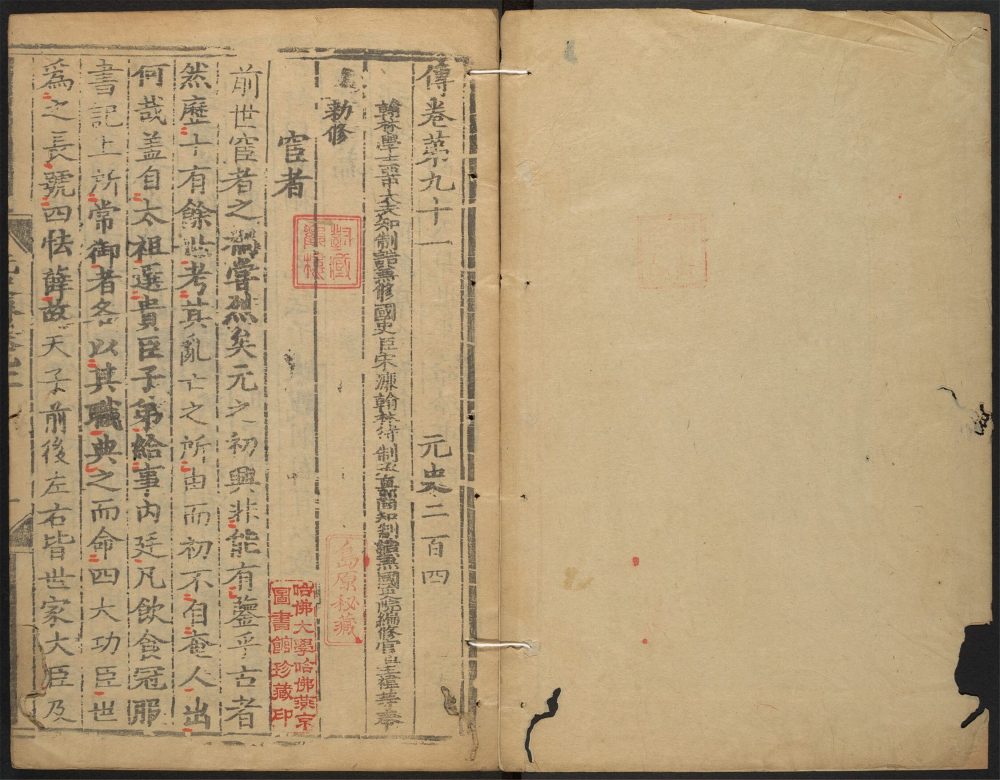 傳卷第九十一 元史二百四
翰林學士亞中大夫知制誥兼修國史臣宋濂翰林待制承直郎同知制誥兼國史院編修官臣王禕等奉
勅修
宦者
前世宦者之禍嘗烈矣元之初興非能有鑒乎古者
然歷十有餘世考其亂亡之所由而初不自奄人出
何哉蓋自太祖選貴臣子弟給事內廷凡飲食冠服
書記上所常御者各以其職典之而命四大功臣世
爲之長號四怯薛故天子前後左右皆世家大臣及
島原秘藏
哈佛大學哈佛燕京
圖書館珍藏印